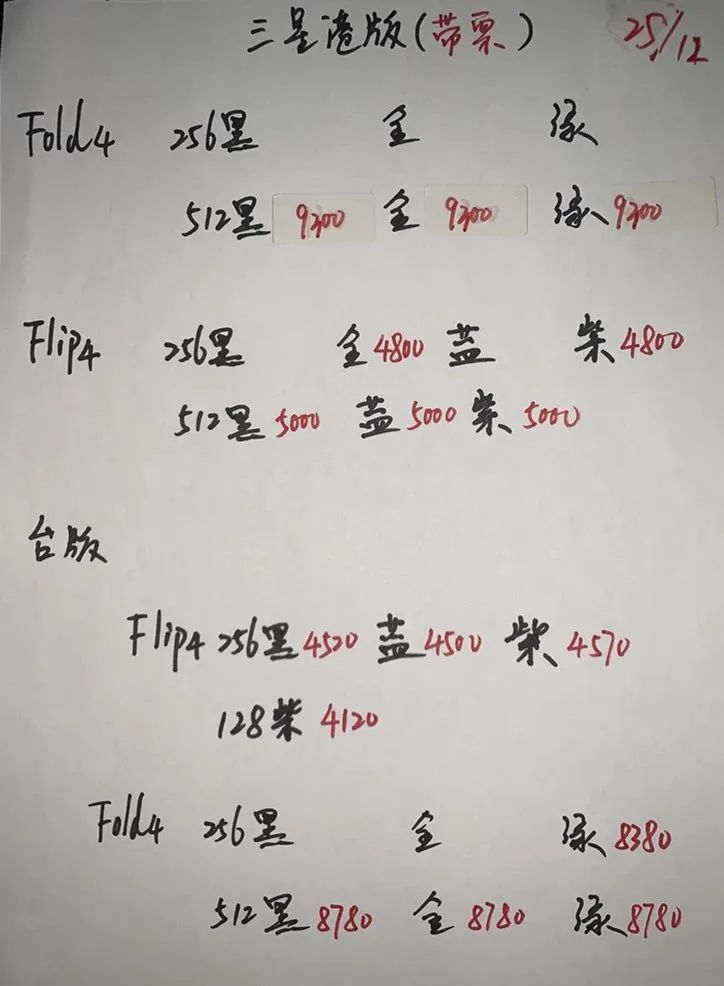 三星港版(带票) 25/12
Fold4 256黑 金 绿
512黑 9200 金 9200 绿 9200
Flip4 256黑 金 4800 蓝 紫 4800
512黑 5000 蓝 5000 紫 5000
台版
Flip4 256黑 4520 蓝 4500 紫 4570
128紫 4120
Fold4 256黑 金 绿 8380
512黑 8780 金 8780 绿 8780